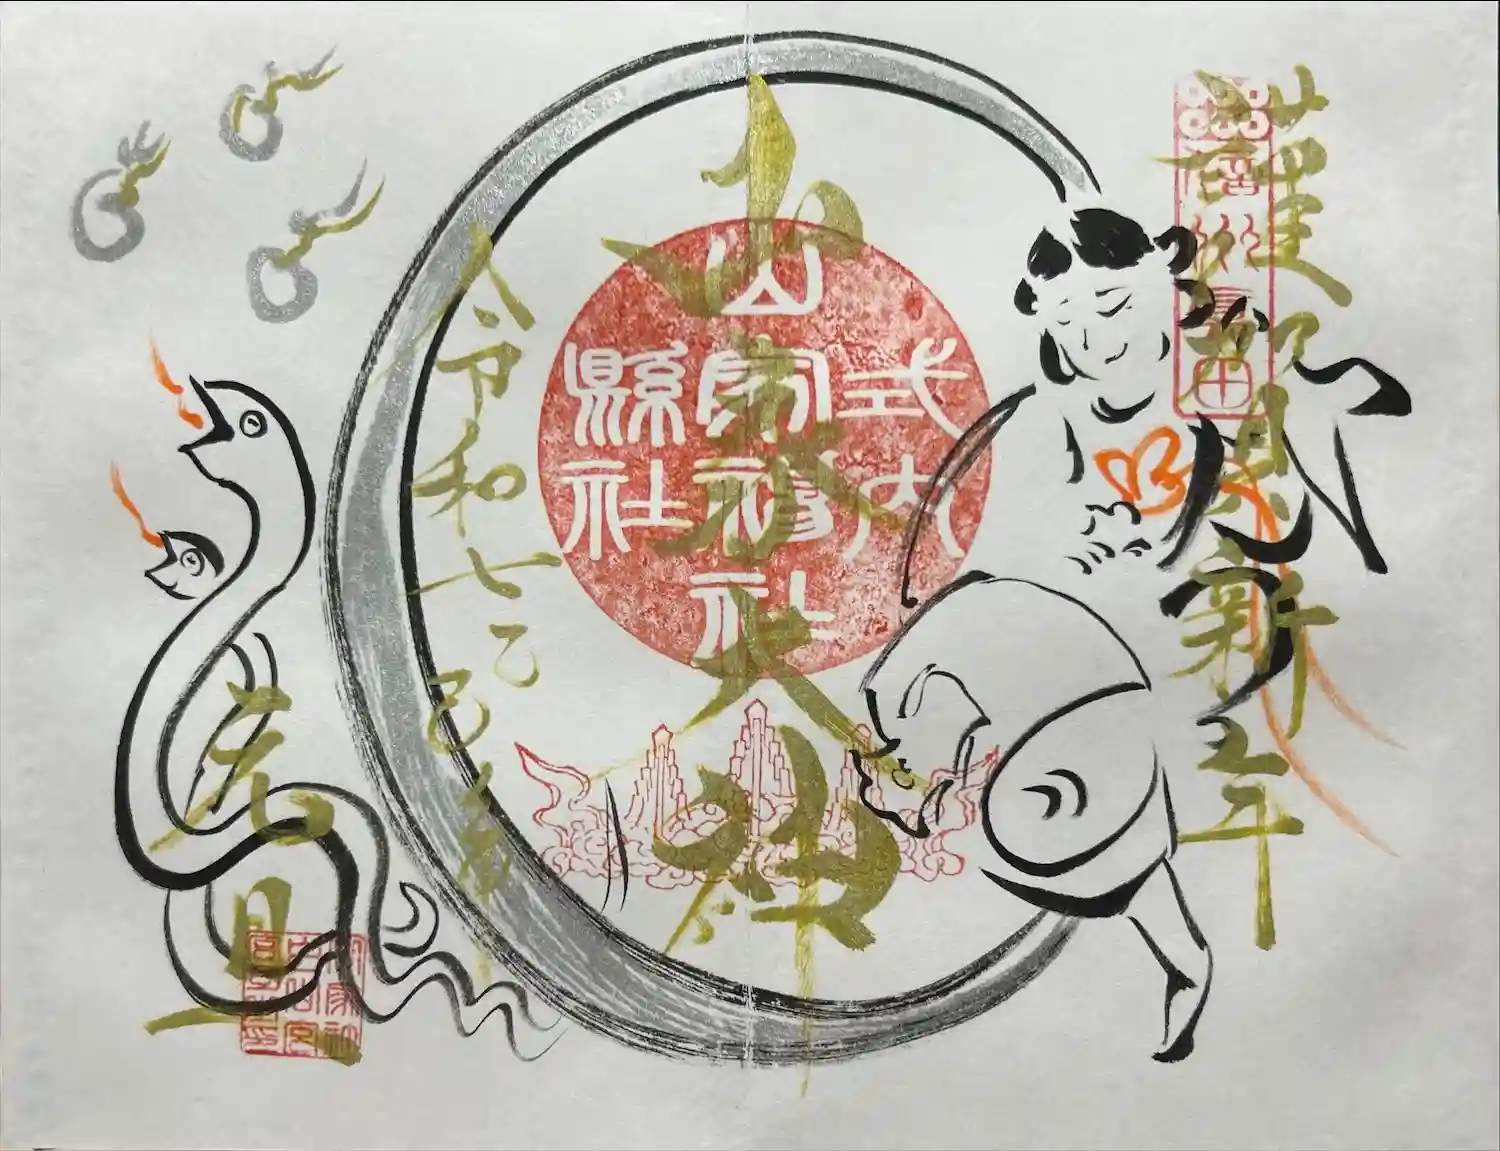 信州真田
新年
山家大神
式内
山家神社
縣社
令和七乙巳年
元旦